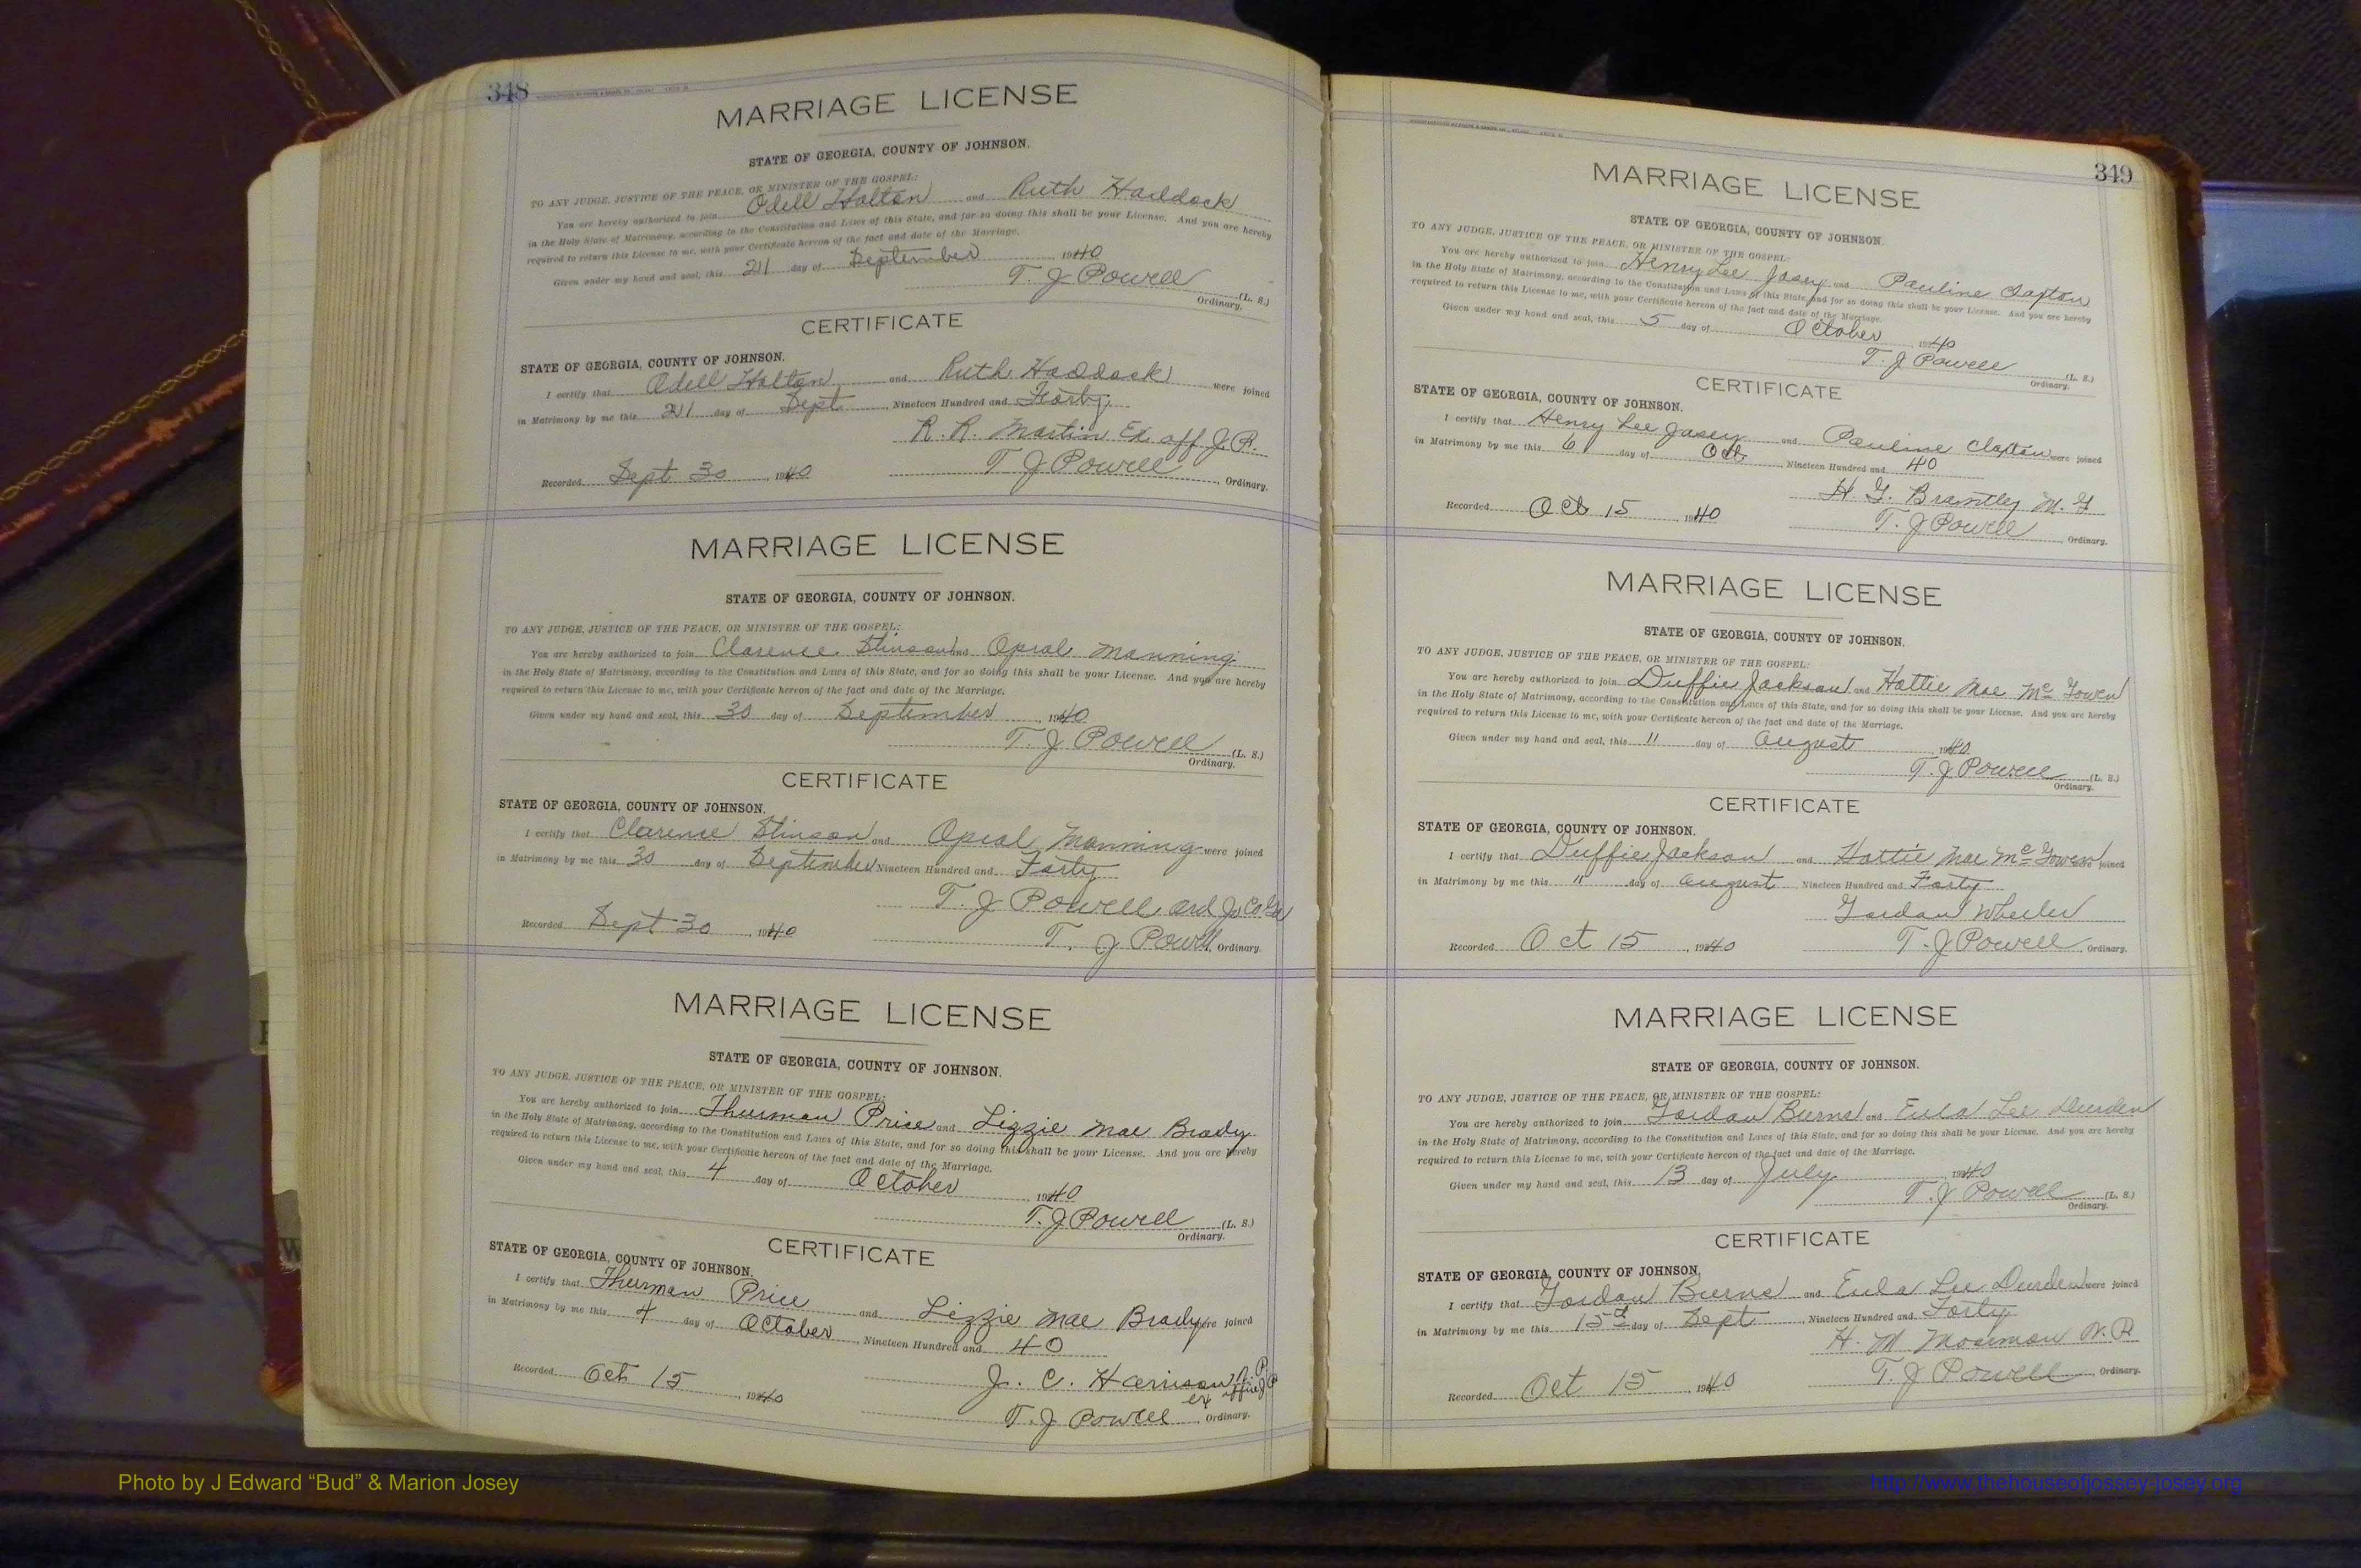 348
MARRIAGE LICENSE
STATE OF GEORGIA, COUNTY OF JOHNSON.
TO ANY JUDGE, JUSTICE OF THE PEACE, OR MINISTER OF THE GOSPEL:
You are hereby authorized to join Odell Holton and Ruth Haddock
in the Holy State of Matrimony, according to the Constitution and Laws of this State, and for so doing this shall be your License. And you are hereby
required to return this License to me, with your Certificate hereon of the fact and date of the Marriage.
Given under my hand and seal, this 21 day of September, 1940
T. J Powell (L. S.)
Ordinary.
CERTIFICATE
STATE OF GEORGIA, COUNTY OF JOHNSON.
I certify that Odell Holton and Ruth Haddock were joined
in Matrimony by me this 21 day of Sept, Nineteen Hundred and Forty
R. R. Martin Ex off J. P.
Recorded Sept 30, 1940 T J Powell, Ordinary.
MARRIAGE LICENSE
STATE OF GEORGIA, COUNTY OF JOHNSON.
TO ANY JUDGE, JUSTICE OF THE PEACE, OR MINISTER OF THE GOSPEL:
You are hereby authorized to join Clarence Stinson and Opial Manning
in the Holy State of Matrimony, according to the Constitution and Laws of this State, and for so doing this shall be your License. And you are hereby
required to return this License to me, with your Certificate hereon of the fact and date of the Marriage.
Given under my hand and seal, this 30 day of September, 1940
T. J Powell (L. S.)
Ordinary.
CERTIFICATE
STATE OF GEORGIA, COUNTY OF JOHNSON.
I certify that Clarence Stinson and Opial Manning were joined
in Matrimony by me this 30 day of September Nineteen Hundred and Forty
T. J Powell ord Jo Co Ga
Recorded Sept 30, 1940 T. J Powell, Ordinary.
MARRIAGE LICENSE
STATE OF GEORGIA, COUNTY OF JOHNSON.
TO ANY JUDGE, JUSTICE OF THE PEACE, OR MINISTER OF THE GOSPEL:
You are hereby authorized to join Thurman Price and Lizzie Mae Brady
in the Holy State of Matrimony, according to the Constitution and Laws of this State, and for so doing this shall be your License. And you are hereby
required to return this License to me, with your Certificate hereon of the fact and date of the Marriage.
Given under my hand and seal, this 4 day of October, 1940
T. J Powell (L. S.)
Ordinary.
CERTIFICATE
STATE OF GEORGIA, COUNTY OF JOHNSON.
I certify that Thurman Price and Lizzie Mae Brady were joined
in Matrimony by me this 4 day of October, Nineteen Hundred and 40
J. C. Harrison
ex office J P
Recorded Oct 15, 1940 T. J Powell, Ordinary.
349
MARRIAGE LICENSE
STATE OF GEORGIA, COUNTY OF JOHNSON.
TO ANY JUDGE, JUSTICE OF THE PEACE, OR MINISTER OF THE GOSPEL:
You are hereby authorized to join Henry Lee Josey and Pauline Claxton
in the Holy State of Matrimony, according to the Constitution and Laws of this State, and for so doing this shall be your License. And you are hereby
required to return this License to me, with your Certificate hereon of the fact and date of the Marriage.
Given under my hand and seal, this 5 day of October, 1940
T. J Powell (L. S.)
Ordinary.
CERTIFICATE
STATE OF GEORGIA, COUNTY OF JOHNSON.
I certify that Henry Lee Josey and Pauline Claxton were joined
in Matrimony by me this 6 day of Oct, Nineteen Hundred and 40
H. G. Brantley M. G
Recorded Oct 15, 1940 T. J Powell, Ordinary.
MARRIAGE LICENSE
STATE OF GEORGIA, COUNTY OF JOHNSON.
TO ANY JUDGE, JUSTICE OF THE PEACE, OR MINISTER OF THE GOSPEL:
You are hereby authorized to join Duffie Jackson and Hattie Mae McGowen
in the Holy State of Matrimony, according to the Constitution and Laws of this State, and for so doing this shall be your License. And you are hereby
required to return this License to me, with your Certificate hereon of the fact and date of the Marriage.
Given under my hand and seal, this 11 day of August, 1940
T. J Powell (L. S.)
Ordinary.
CERTIFICATE
STATE OF GEORGIA, COUNTY OF JOHNSON.
I certify that Duffie Jackson and Hattie Mae McGowen were joined
in Matrimony by me this 11 day of August, Nineteen Hundred and Forty
Gordan Wheeler
Recorded Oct 15, 1940 T. J Powell Ordinary.
MARRIAGE LICENSE
STATE OF GEORGIA, COUNTY OF JOHNSON.
TO ANY JUDGE, JUSTICE OF THE PEACE, OR MINISTER OF THE GOSPEL:
You are hereby authorized to join Gordan Burns and Eula Lee Durden
in the Holy State of Matrimony, according to the Constitution and Laws of this State, and for so doing this shall be your License. And you are hereby
required to return this License to me, with your Certificate hereon of the fact and date of the Marriage.
Given under my hand and seal, this 13 day of July, 1940
T. J Powell (L. S.)
Ordinary.
CERTIFICATE
STATE OF GEORGIA, COUNTY OF JOHNSON.
I certify that Gordan Burns and Eula Lee Durden were joined
in Matrimony by me this 15 day of Sept, Nineteen Hundred and Forty
H. M
Recorded Oct 15, 1940 T. J Powell Ordinary.
Photo by J Edward “Bud” & Marion Josey
http://www.thehouseofjossey-josey.org